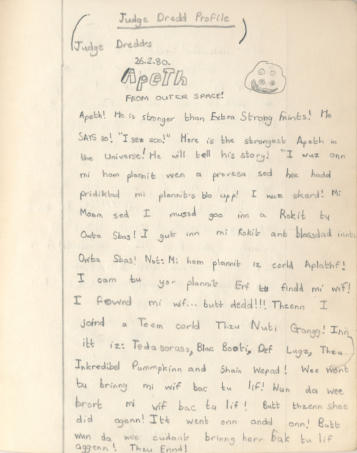 Judge Dredd Profile
Judge Dredds
26.2.80.
Apeth
FROM OUTER SPACE!
Apeth! He is stronger than Extra Strong mints! He
SAYS so! "I sez son!" Here is the strongest Apeth in
the Universe! He will tell his story! "I waz onn
mi hom plannit wen a provesa sed hee hadd
pridiktad mi plannit's blo upp! I waz skard! Mi
Moam sed I mussd goo inn a Rokit tu
Outa Sbas! I gutt inn mi Rokit ant blassdad inntu
Outa Sbas! Not: Mi hom plannit iz corld Aplathf!
I cam tu yor plannit Erf tu findd mi wif!
I fownd mi wif... butt dedd!!! Thzenn I
joind a Teem corld Thzu Nuti Gangg! Inn
itt iz: Tedasorass, Blac Booti, Def Lugz, Thzu
Inkredibel Pummpkinn and Shain Wepad! Wee wont
tu brinng mi wif bac tu lif! Wan da wee
brort mi wif bac tu lif! Butt thzenn shee
did agenn! Itt went onn andd onn! Butt
wan da wee cudant brinng herr bak tu lif
aggenn! Thzu Ennd!